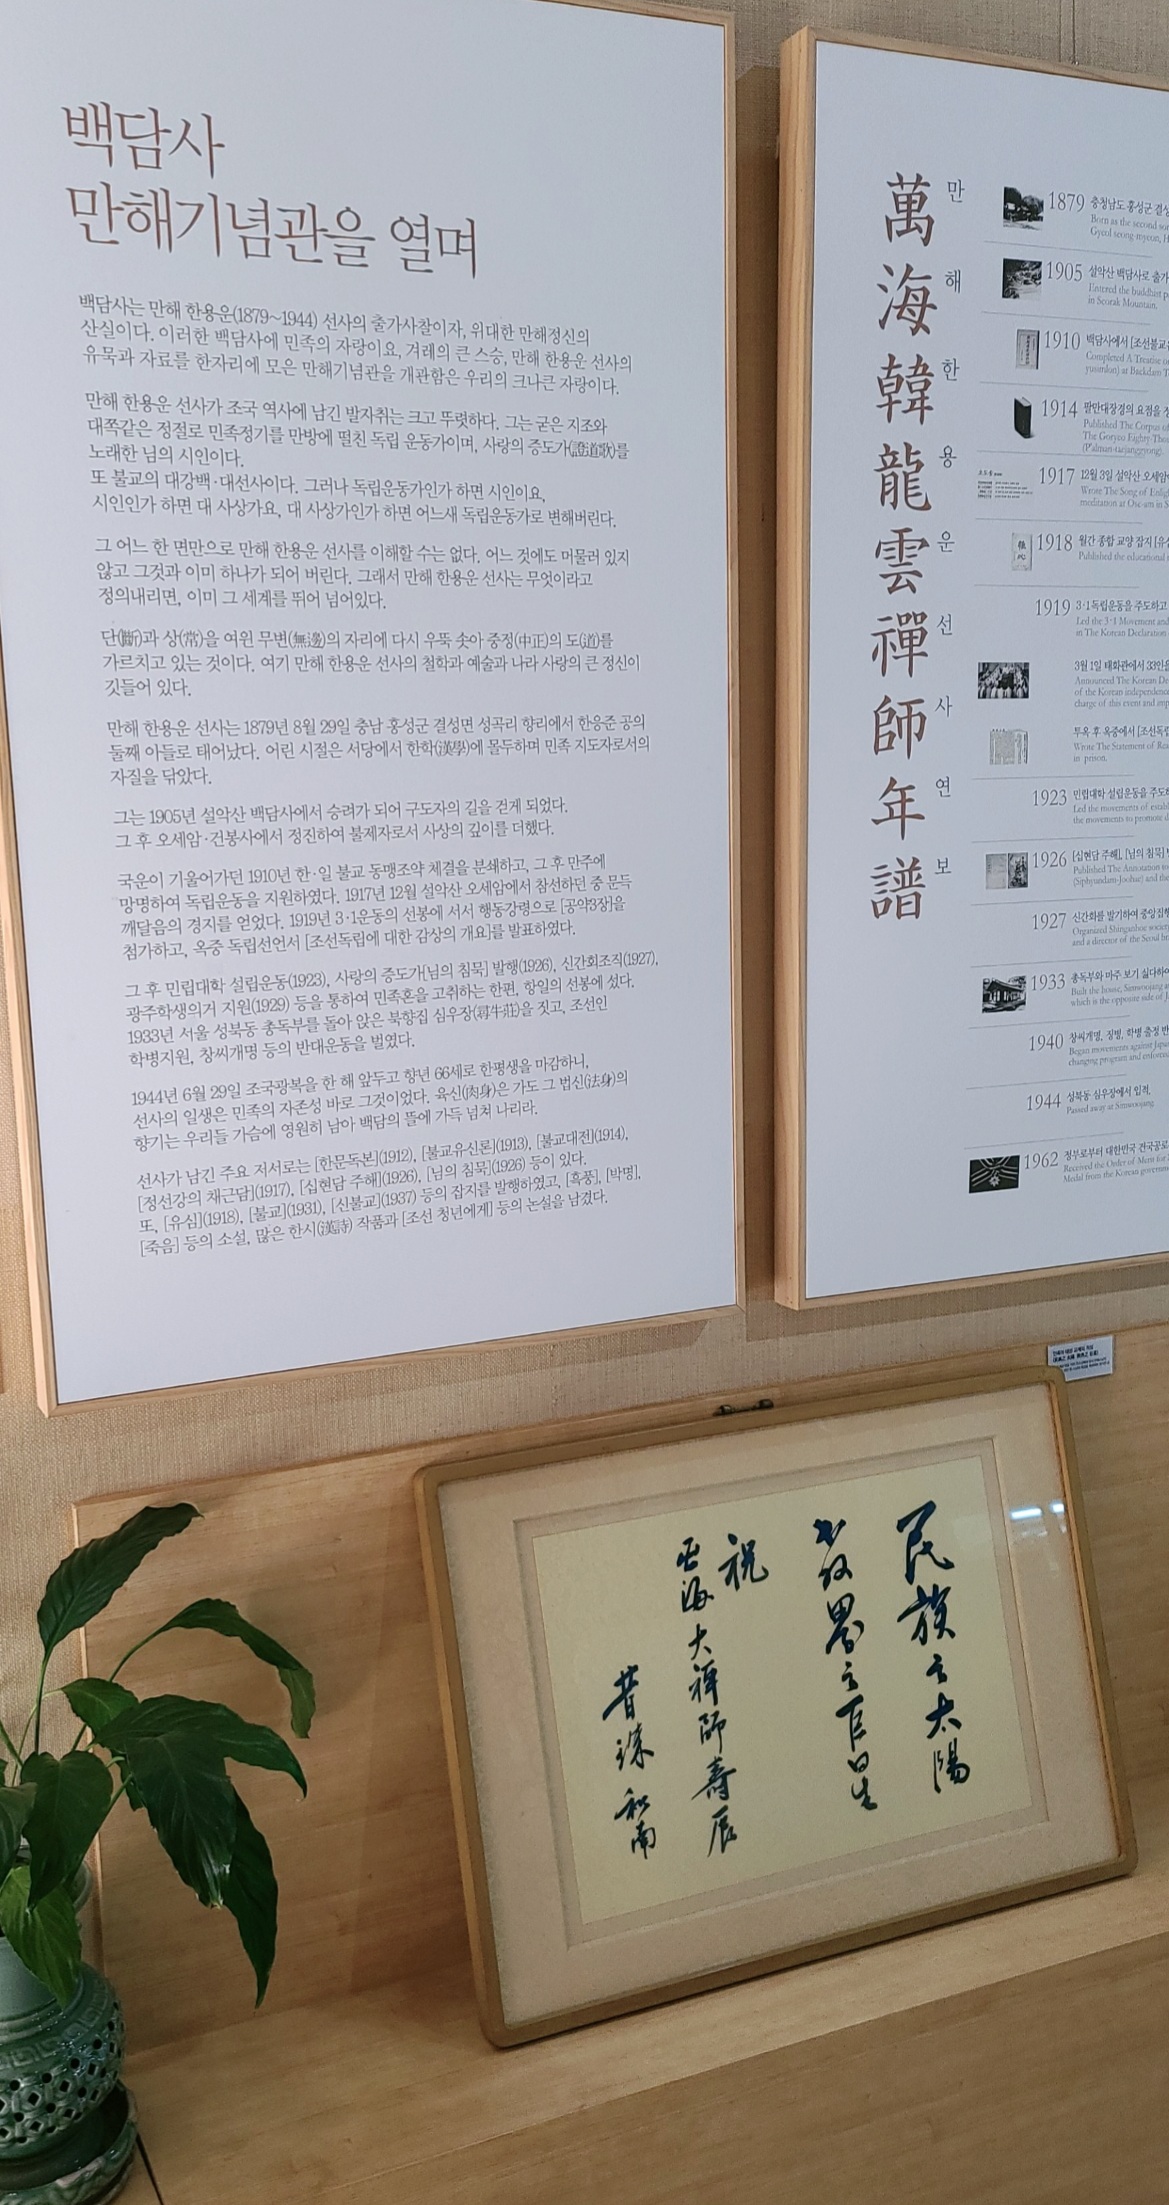 백담사
만해기념관을 열며
백담사는 만해 한용운(1879~1944) 선사의 출가사찰이자, 위대한 만해정신의
산실이다. 이러한 백담사에 민족의 자랑이요, 겨레의 큰 스승, 만해 한용운 선사의
유묵과 자료를 한자리에 모은 만해기념관을 개관함은 우리의 크나큰 자랑이다.
만해 한용운 선사가 조국 역사에 남긴 발자취는 크고 뚜렷하다. 그는 굳은 지조와
대쪽같은 정절로 민족정기를 만방에 떨친 독립 운동가이며, 사랑의 증도가(證道歌)를
노래한 님의 시인이다.
또 불교의 대강백·대선사이다. 그러나 독립운동가인가 하면 시인이요,
시인인가 하면 대 사상가요, 대 사상가인가 하면 어느새 독립운동가로 변해버린다.
그 어느 한 면만으로 만해 한용운 선사를 이해할 수는 없다. 어느 것에도 머물러 있지
않고 그것과 이미 하나가 되어 버린다. 그래서 만해 한용운 선사는 무엇이라고
정의내리면, 이미 그 세계를 뛰어 넘어있다.
단(斷)과 상(常)을 여읜 무변(無邊)의 자리에 다시 우뚝 솟아 중정(中正)의 도(道)를
가르치고 있는 것이다. 여기 만해 한용운 선사의 철학과 예술과 나라 사랑의 큰 정신이
깃들어 있다.
만해 한용운 선사는 1879년 8월 29일 충남 홍성군 결성면 성곡리 향리에서 한응준 공의
둘째 아들로 태어났다. 어린 시절은 서당에서 한학(漢學)에 몰두하며 민족 지도자로서의
자질을 닦았다.
그는 1905년 설악산 백담사에서 승려가 되어 구도자의 길을 걷게 되었다.
그 후 오세암·건봉사에서 정진하여 불제자로서 사상의 깊이를 더했다.
국운이 기울어가던 1910년 한·일 불교 동맹조약 체결을 분쇄하고, 그 후 만주에
망명하여 독립운동을 지원하였다. 1917년 12월 설악산 오세암에서 참선하던 중 문득
깨달음의 경지를 얻었다. 1919년 3·1운동의 선봉에 서서 행동강령으로 [공약3장]을
첨가하고, 옥중 독립선언서 [조선독립에 대한 감상의 개요]를 발표하였다.
그 후 민립대학 설립운동(1923), 사랑의 증도가[님의 침묵] 발행(1926), 신간회조직(1927),
광주학생의거 지원(1929) 등을 통하여 민족혼을 고취하는 한편, 항일의 선봉에 섰다.
1933년 서울 성북동 총독부를 돌아 앉은 북향집 심우장(尋牛莊)을 짓고, 조선인
학병지원, 창씨개명 등의 반대운동을 벌였다.
1944년 6월 29일 조국광복을 한 해 앞두고 향년 66세로 한평생을 마감하니,
선사의 일생은 민족의 자존성 바로 그것이었다. 육신(肉身)은 가도 그 법신(法身)의
향기는 우리들 가슴에 영원히 남아 백담의 뜰에 가득 넘쳐 나리라.
선사가 남긴 주요 저서로는 [한문독본](1912), [불교유신론](1913), [불교대전](1914),
[정선강의 채근담](1917), [십현담 주해](1926), [님의 침묵](1926) 등이 있다.
또, [유심](1918), [불교](1931), [신불교](1937) 등의 잡지를 발행하였고, [흑풍], [박명],
[죽음] 등의 소설, 많은 한시(漢詩) 작품과 [조선 청년에게] 등의 논설을 남겼다.
萬海韓龍雲禪師年譜
만해한용운선사연보
1879 충청남도 홍성군 결성
Born as the second son
Gyeol seong-myeon, H
1905 설악산 백담사로 출가
Entered the buddhist p
in Seorak Mountain.
1910 백담사에서 [조선불교
Completed A Treatise on
yusinlon) at Backdam T
1914 팔만대장경의 요점을
Published The Corpus of
The Goryeo Eighty-Thou
(P'alman-taejanggyong).
1917 12월 3일 설악산 오세암
Wrote The Song of Enlig
meditation at Ose-am in S
1918 월간 종합 교양 잡지 [유심
Published the educational
1919 3·1독립운동을 주도하고
Led the 3·1 Movement and
in The Korean Declaration
3월 1일 태화관에서 33인을
Announced The Korean De
of the Korean independenc
charge of this event and imp
투옥 후 옥중에서 [조선독립
Wrote The Statement of Rea
in prison.
1923 민립대학 설립운동을 주도하
Led the movements of establ
the movements to promote d
1926 [십현담 주해], [님의 침묵]
Published The Annotation to
(Siphyundam-Joohae) and the
1927 신간회를 발기하여 중앙집행
Organized Shinganhoe society
and a director of the Seoul br
1933 총독부와 마주 보기 싫다하여
Built the house, Simwoojang as
which is the opposite side of J
1940 창씨개명, 징병, 학병 출정 반
Began movements against Japa
changing program and enforce
1944 성북동 심우장에서 입적.
Passed away at Simwoojang.
1962 정부로부터 대한민국 건국공로
Received the Order of Merit for
Medal from the Korean governme
民族之太陽
敎界之巨星
祝
卍海大禪師壽辰
菩珠和南